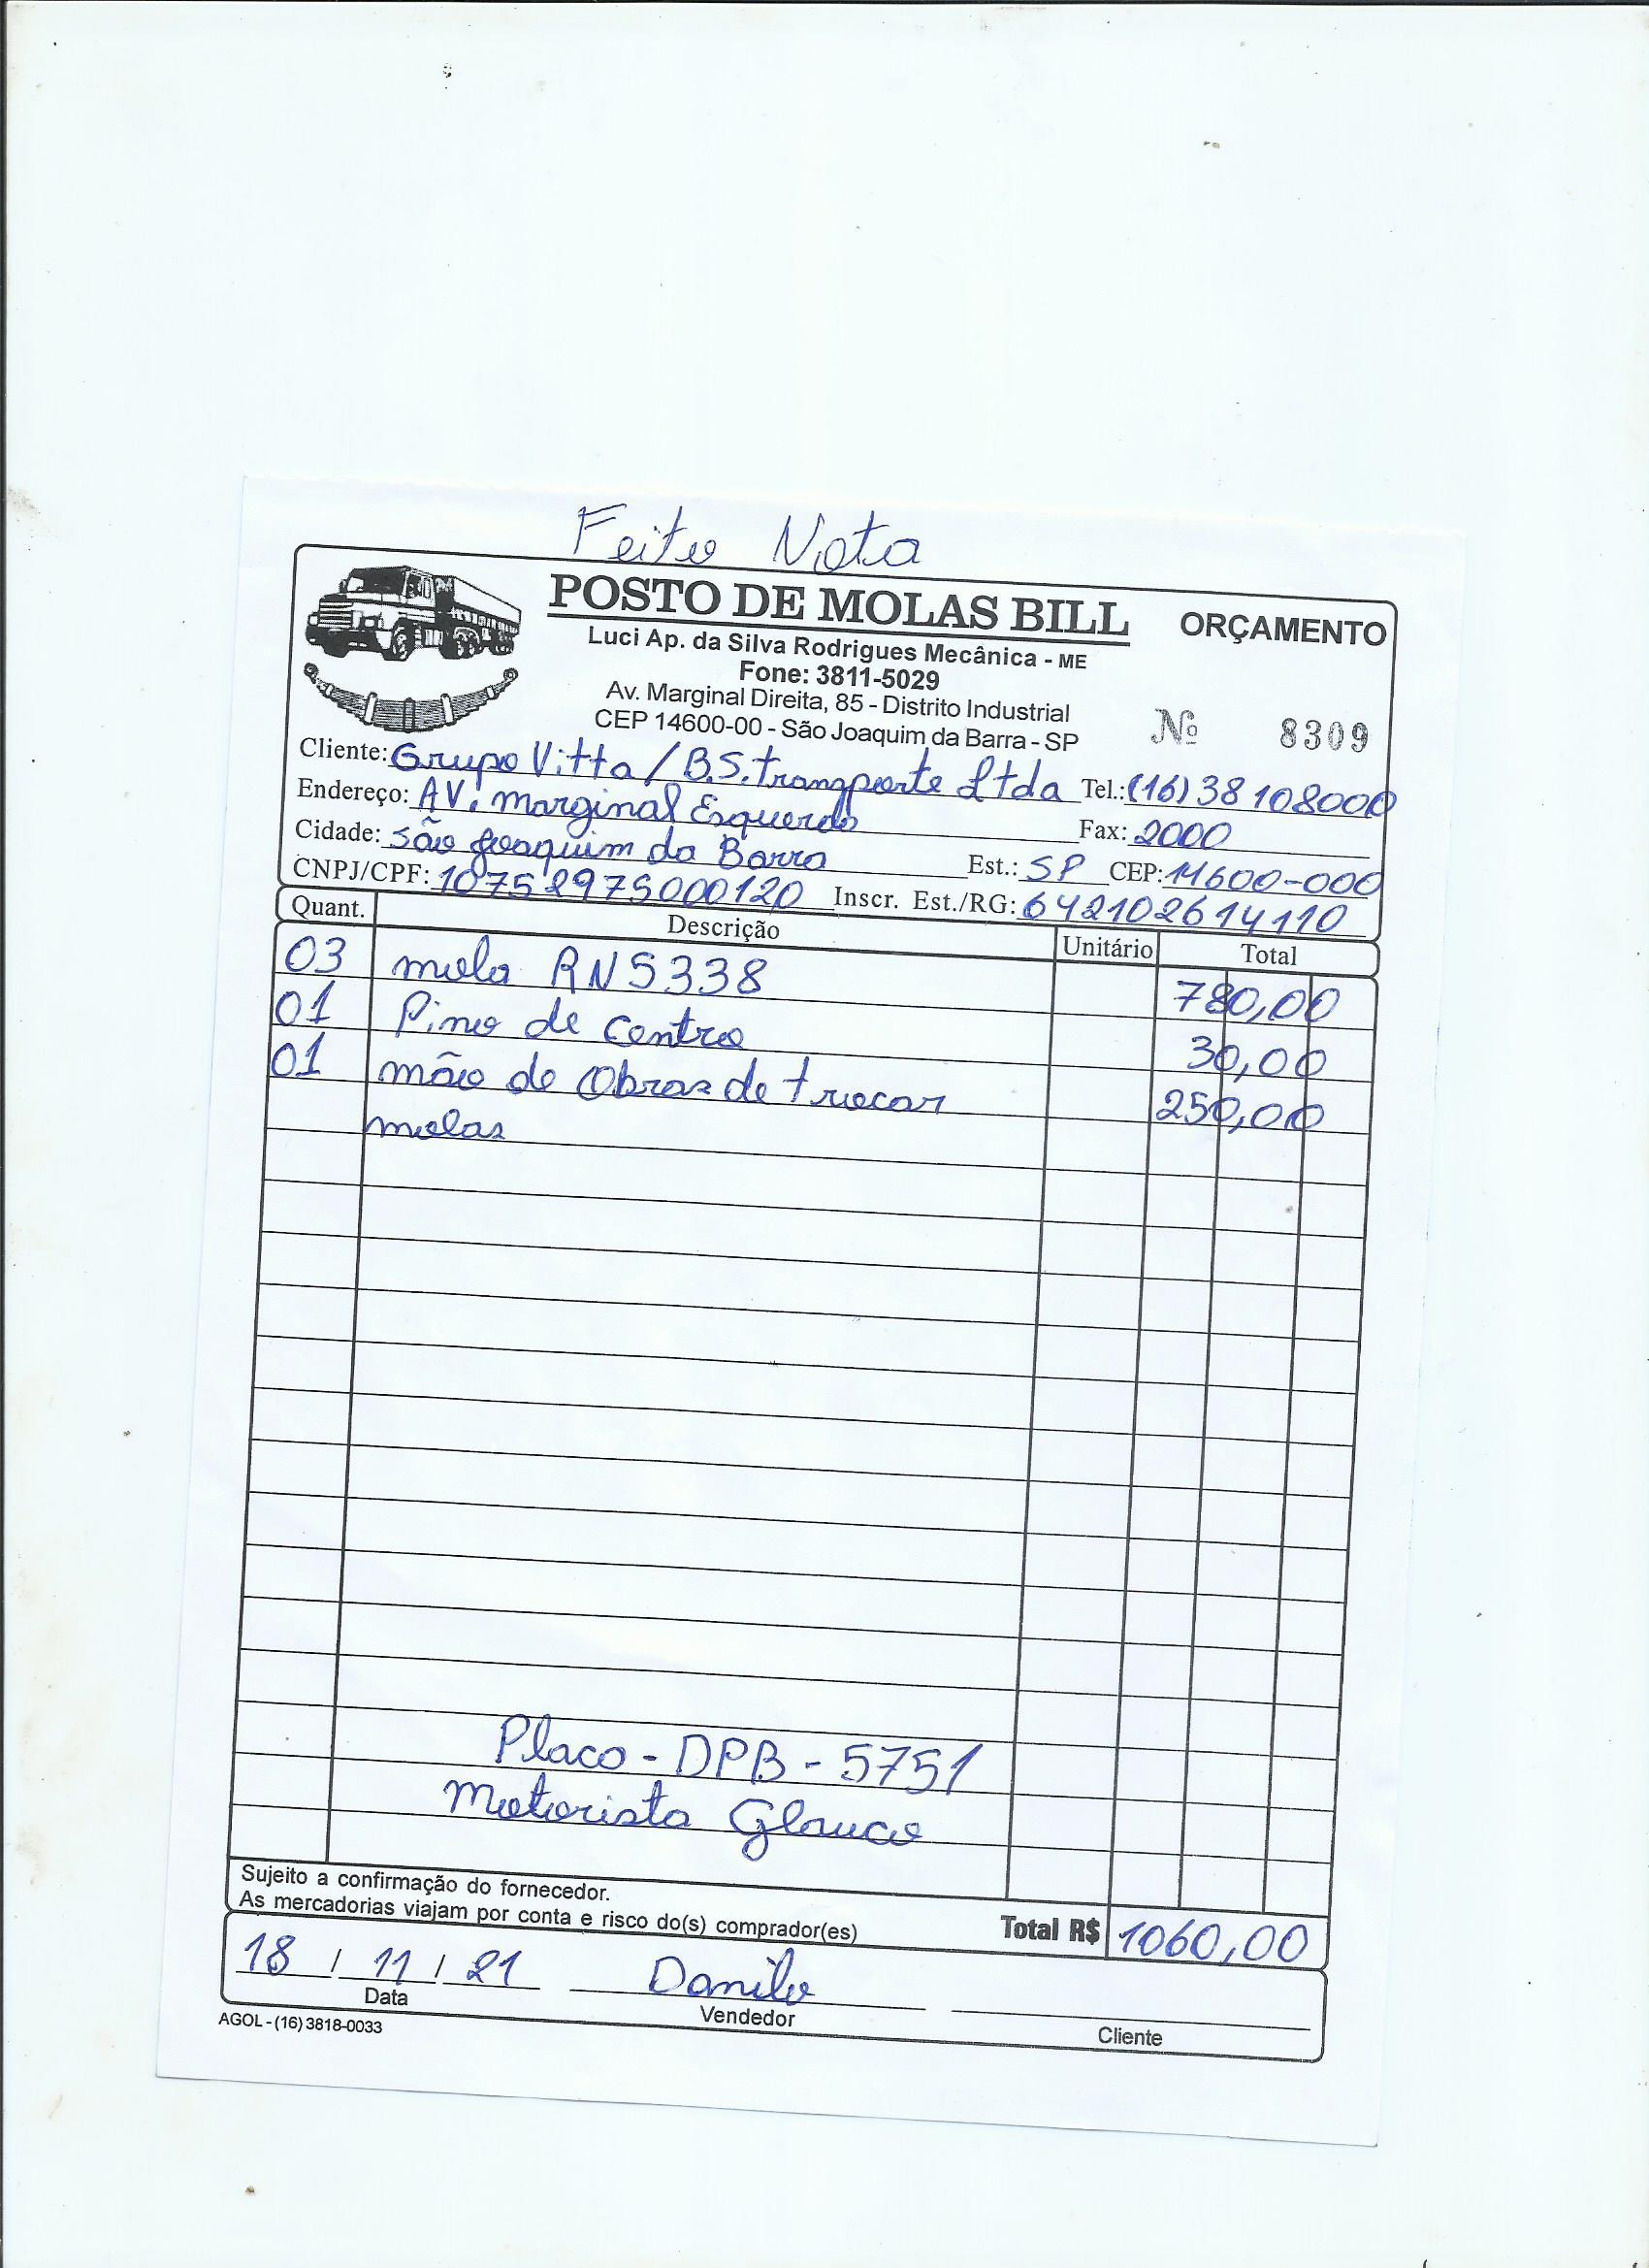 Feito Nota
POSTO DE MOLAS BILL ORÇAMENTO
Luci Ap. da Silva Rodrigues Mecânica - ME
Fone: 3811-5029
Av. Marginal Direita, 85 - Distrito Industrial
CEP 14600-00 - São Joaquim da Barra - SP
Nº 8309
Cliente: Grupo Vitta / B.S. transporte Ltda Tel.: (16) 38108000
Endereço: AV. marginal Esquerda Fax: 2000
Cidade: São Joaquim da Barra Est.: SP CEP: 14600-000
CNPJ/CPF: 10752975000120 Inscr. Est./RG: 642102614110
Quant. Descrição Unitário Total
03 mola RN5338 780,00
01 Pino de Centro 30,00
01 mão de Obras de trocar 250,00
molas
Placa - DPB - 5751
Motorista Glauco
Sujeito a confirmação do fornecedor.
As mercadorias viajam por conta e risco do(s) comprador(es)
Total R$ 1060,00
18 / 11 / 21 Danilo
Data Vendedor Cliente
AGOL - (16) 3818-0033